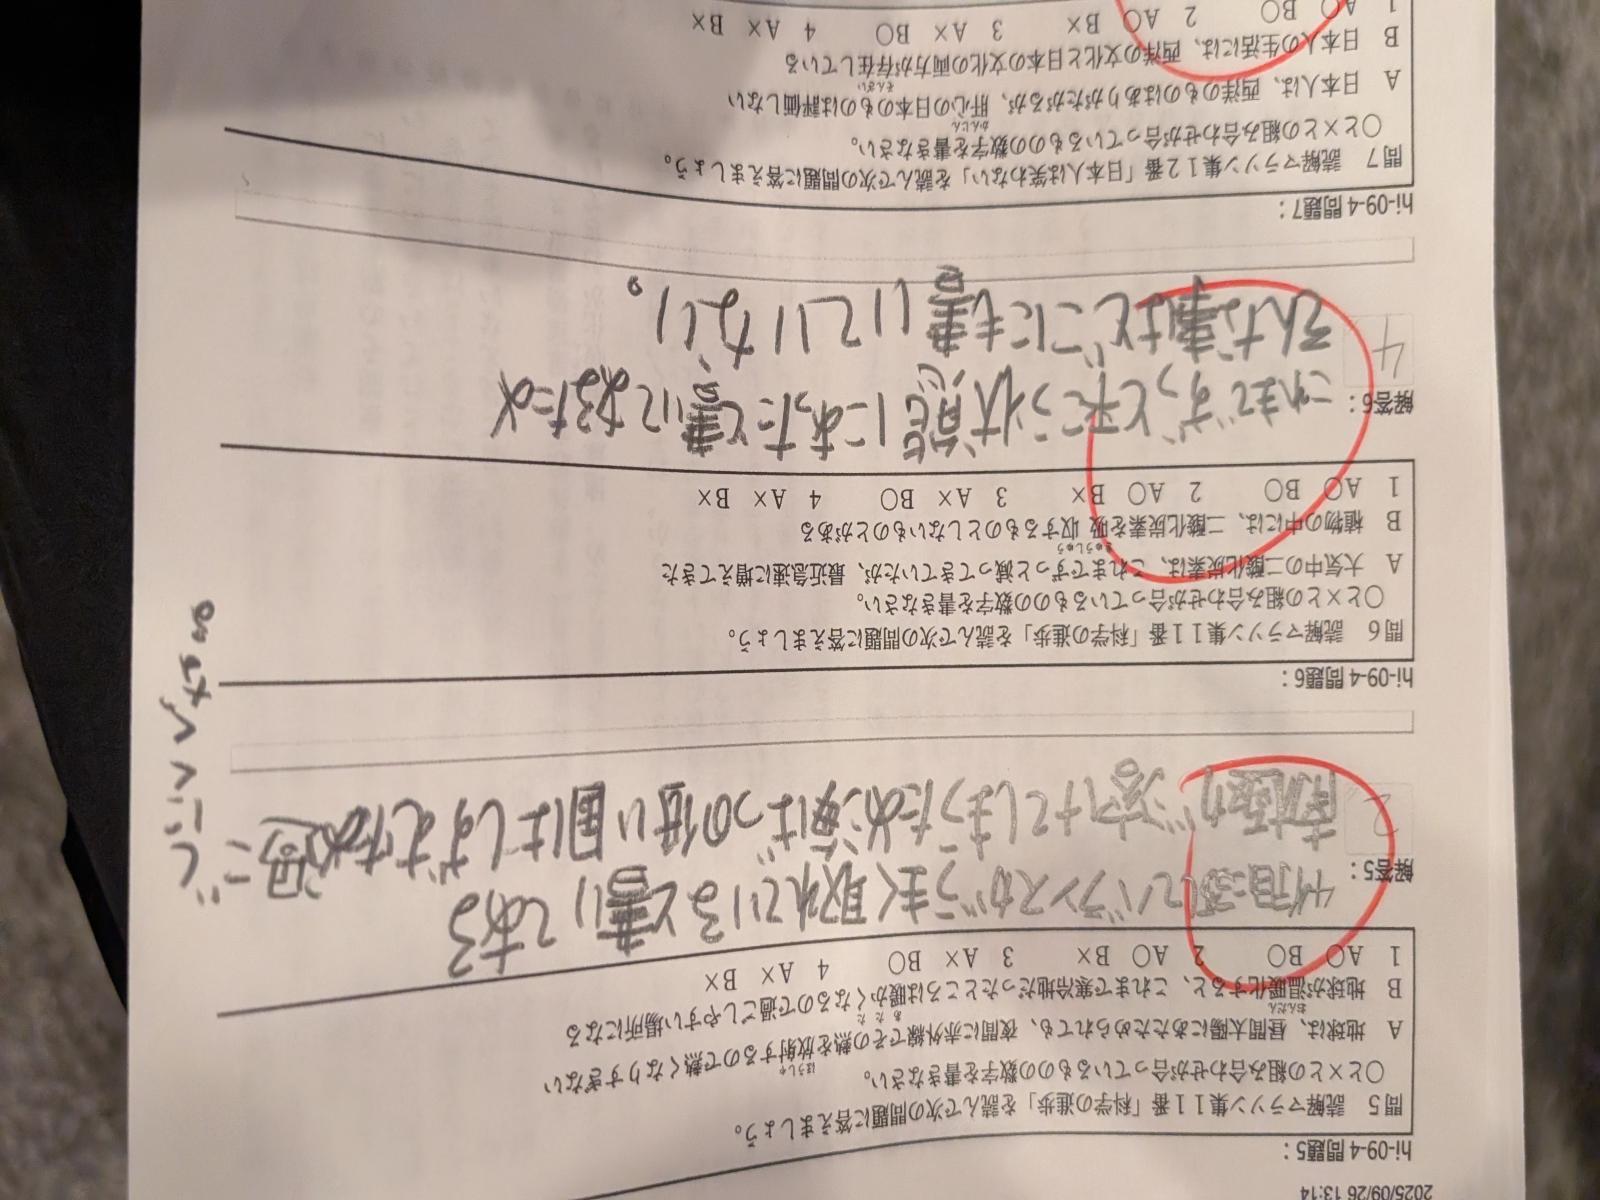 2025/09/26 13:14
hi-09-4 問題5：
問5 読解マラソン集11番「科学の進歩」を読んで次の問題に答えましょう。
○と×との組み合わせが合っているものの数字を書きなさい。
A 地球は、昼間太陽にあたためられても、夜間に赤外線でその熱を放射するので熱くなりすぎない
B 地球が温暖化すると、これまで寒冷地だったところは暖かくなるので過ごしやすい場所になる
1 A○ B○ 2 A○ B× 3 A× B○ 4 A× B×
解答5：
2
バランスがうまく取れていると書いてある
南極が溶けてしまうため海ばつの低い国はしずむため過ごし
にくくなる。
hi-09-4 問題6：
問6 読解マラソン集11番「科学の進歩」を読んで次の問題に答えましょう。
○と×との組み合わせが合っているものの数字を書きなさい。
A 大気中の二酸化炭素は、これまでずっと減ってきていたが、最近急速に増えてきた
B 植物の中には、二酸化炭素を吸収するものとしないものとがある
1 A○ B○ 2 A○ B× 3 A× B○ 4 A× B×
解答6：
4
これまでずっと平こう状態にあったと書いてあるため
そんな事はどこにも書いていない。
hi-09-4 問題7：
問7 読解マラソン集12番「日本人は笑わない」を読んで次の問題に答えましょう。
○と×との組み合わせが合っているものの数字を書きなさい。
A 日本人は、西洋のものはありがたがるが、肝心の日本のものは評価しない
B 日本人の生活には、西洋の文化と日本の文化の両方が存在している
1 A○ B○ 2 A○ B× 3 A× B○ 4 A× B×